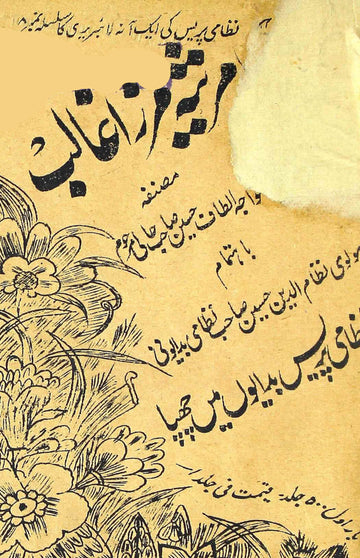 نظامی پریس کی ایک آنہ لائبریری کا سلسلہ نمبر ۱۸
مرثیہ مرزا غالب
مصنفہ
واجہ الطاف حسین صاحب حالی مرحوم
باہتمام
مولوی نظام الدین حسین صاحب نظامی بدایونی
نظامی پریس بدایوں میں چھپا
بار اول ۵۰۰ جلد قیمت فی جلد ۱ر